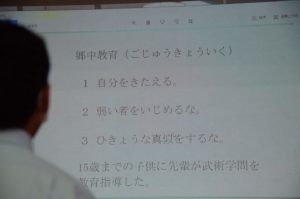 郷中教育(ごじゅうきょういく)
1 自分をきたえる。
2 弱い者をいじめるな。
3 ひきょうな真似をするな。
15歳までの子供に先輩が武術学問を
教育指導した。